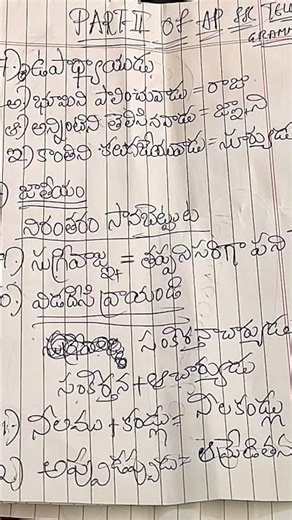 PART-II OF AP SSC TELU
GRAMM
7. ఉపాధ్యాయుడు
అ) భూమిని పాలించువాడు = రాజు
ఆ) అన్నింటిని తెలిసినవాడు = జ్ఞాని
ఇ) కాంతిని కలుగజేయువాడు = సూర్యుడు
జాతీయం
నిరంతరం సానబెట్టుట
సుగ్రీవాజ్ఞ = తప్పనిసరిగా పని
విడదీసి వ్రాయండి
సంకీర్తనాచార్యుడు
సంకీర్తన + ఆచార్యుడు
1.) నీలము + కండ్లు = నీలకండ్లు
2) అప్పుడప్పుడు = ఆమ్రేడితస